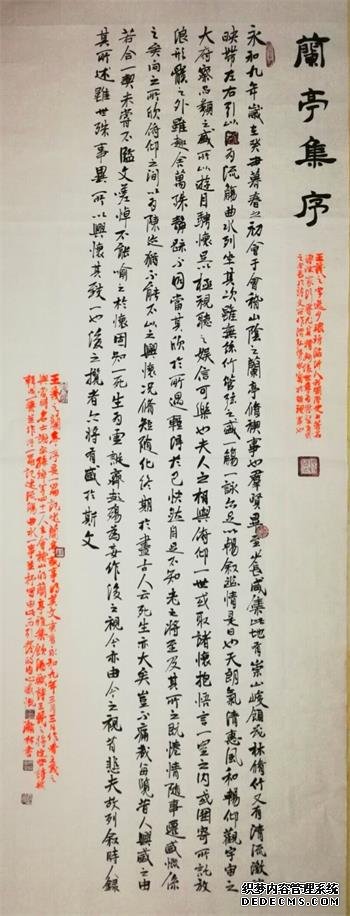 蘭亭集序
永和九年歲在癸丑暮春之初會于會稽山陰之蘭亭脩稧事也群賢畢至咸集此地有崇山峻領茂林脩竹又有清流激湍
映帶左右引以為流觴曲水列坐其次雖無絲竹管弦之盛一觴一詠亦足以暢敘幽情是日也天朗氣清惠風和暢仰觀宇宙之
大俯察品類之盛所以遊目騁懷足以極視聽之娛信可樂也夫人之相與俯仰一世或取諸懷抱悟言一室之內或因寄所託放
浪形骸之外雖趣舍萬殊靜躁不同當其欣於所遇輒得於己快然自足不知老之將至及其所之既惓情隨事遷感慨係
之矣向之所欣俯仰之間以為陳迹猶不能不以之興懷況脩短隨化終期於盡古人云死生亦大矣豈不痛哉每覽昔人興感之由
若合一契未嘗不臨文嗟悼不能喻之於懷固知一死生為虛誕齊彭殤為妄作後之視今亦由今之視昔悲夫故列敘時人錄
其所述雖世殊事異所以興懷其致一也後之攬者亦將有感於斯文
王羲之字逸少
王羲之蘭亭序是一篇記述蘭亭盛事的美文東晉永和九年三月三日作者王羲之
與當時名士謝安孫綽等四十一人在會稽山的蘭亭雅集飲酒賦詩王羲之將這些詩
织梦内容管理系统
DEDECMS.COM